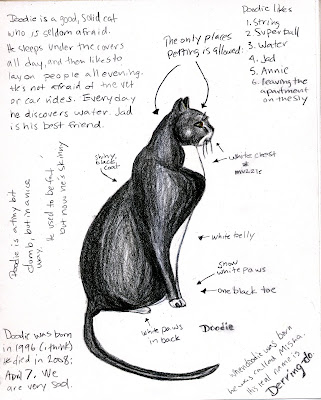 Doodie is a good, solid cat
who is seldom afraid.
He sleeps under the covers
all day, and then likes to
lay on people all evening.
He's not afraid of the vet
or car rides. Everyday
he discovers water. Jad
is his best friend.
The only places
petting is allowed:
Doodie likes
1. String
2. Superball
3. Water
4. Jad
5. Annie
6. leaving the
apartment
on the sly
shiny
black
coat
white chest
&
muzzle
Doodie is a tiny bit
dumb, but in a nice
way.
He used to be fat
but now he's skinny
white belly
snow
white paws
one black toe
white paws
in back
Doodie
Doodie was born
in 1996 (i think)
He died in 2008;
April 7. We
are very sad.
when doodie was born
he was called Misha.
His real name is
Derring do.